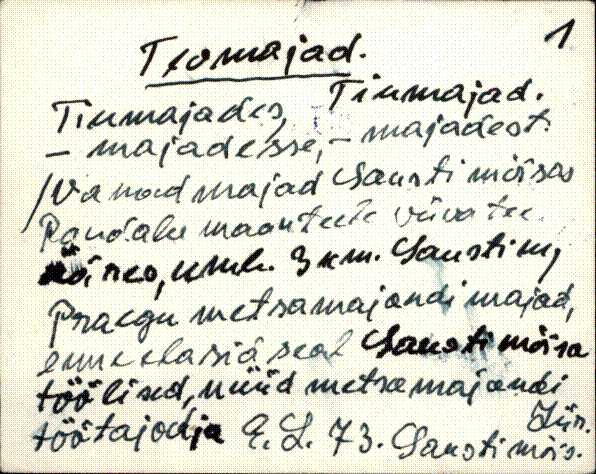 1
Tiumajad.
Tiumajades, Tiumajad.
– majadesse, – majadest.
/Vanad majad Sausti mõisas
Raudalu maanteele viiva tee
ääres, umb. 3 km. Sausti m,
Praegu metsamajandi majad,
enne elasid seal Sausti mõisa
töölised, nüüd metsamajandi
töötajad E. L. 73. Sausti mõis.
Jür.